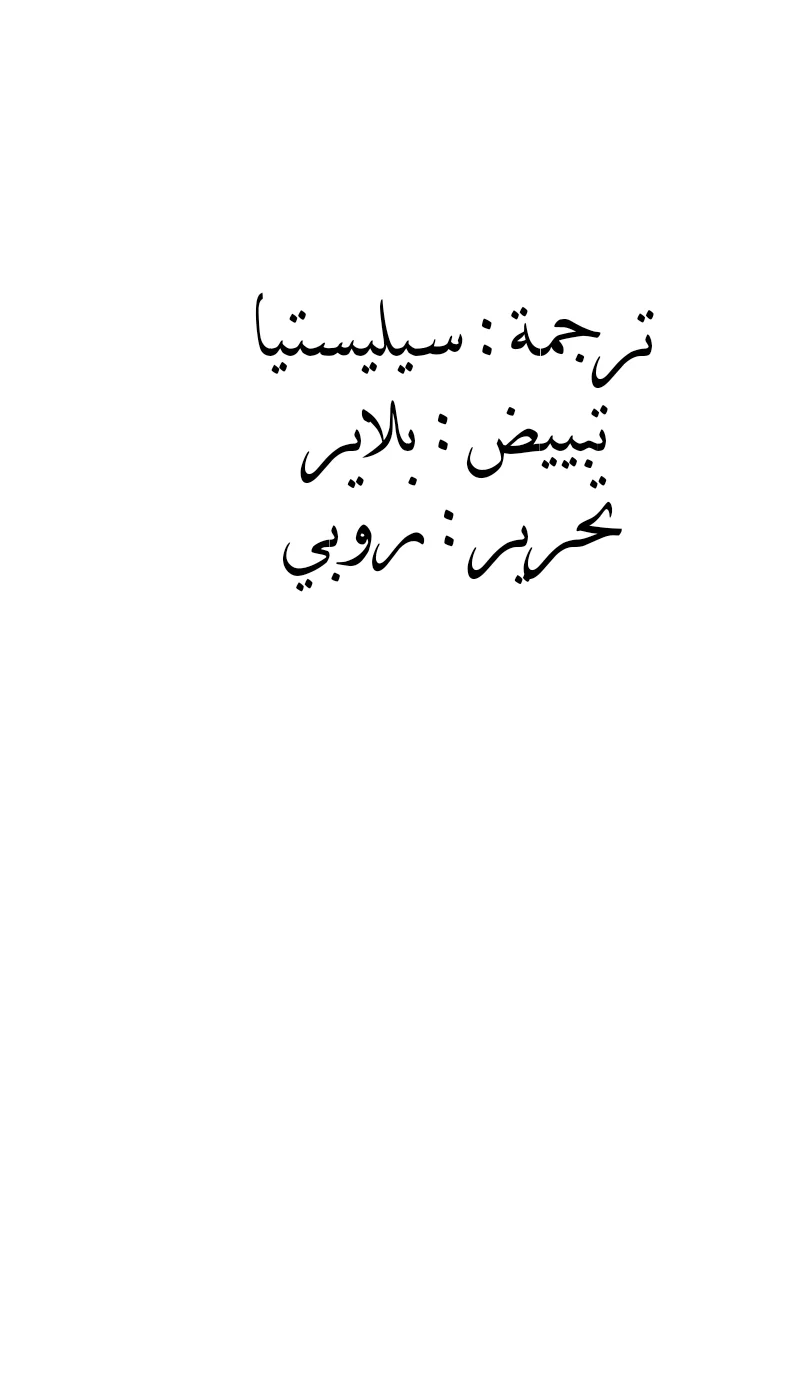 ترجمة : سيليستيا
تبييض : بلاير
تحرير : روبي